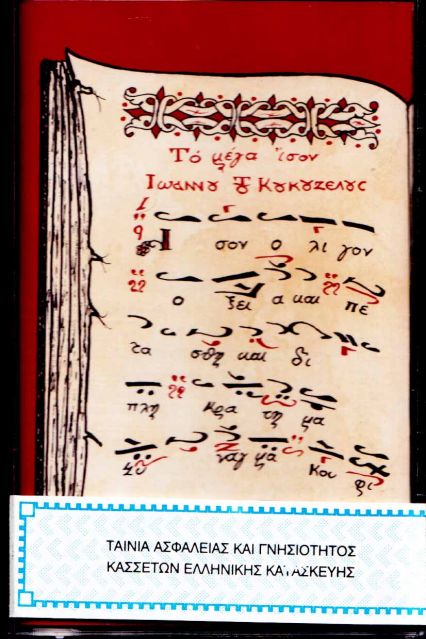 Τό μέγα ἴσον
Ιωάννου τοῦ Κουκουζέλους
Ι σον ο λι γον
ο ξει α και πε
τα σθη και δι
πλη κρα τη μα
κυ ναγ μα και φι
ΤΑΙΝΙΑ ΑΣΦΑΛΕΙΑΣ ΚΑΙ ΓΝΗΣΙΟΤΗΤΟΣ
ΚΑΣΣΕΤΩΝ ΕΛΛΗΝΙΚΗΣ ΚΑΤΑΣΚΕΥΗΣ